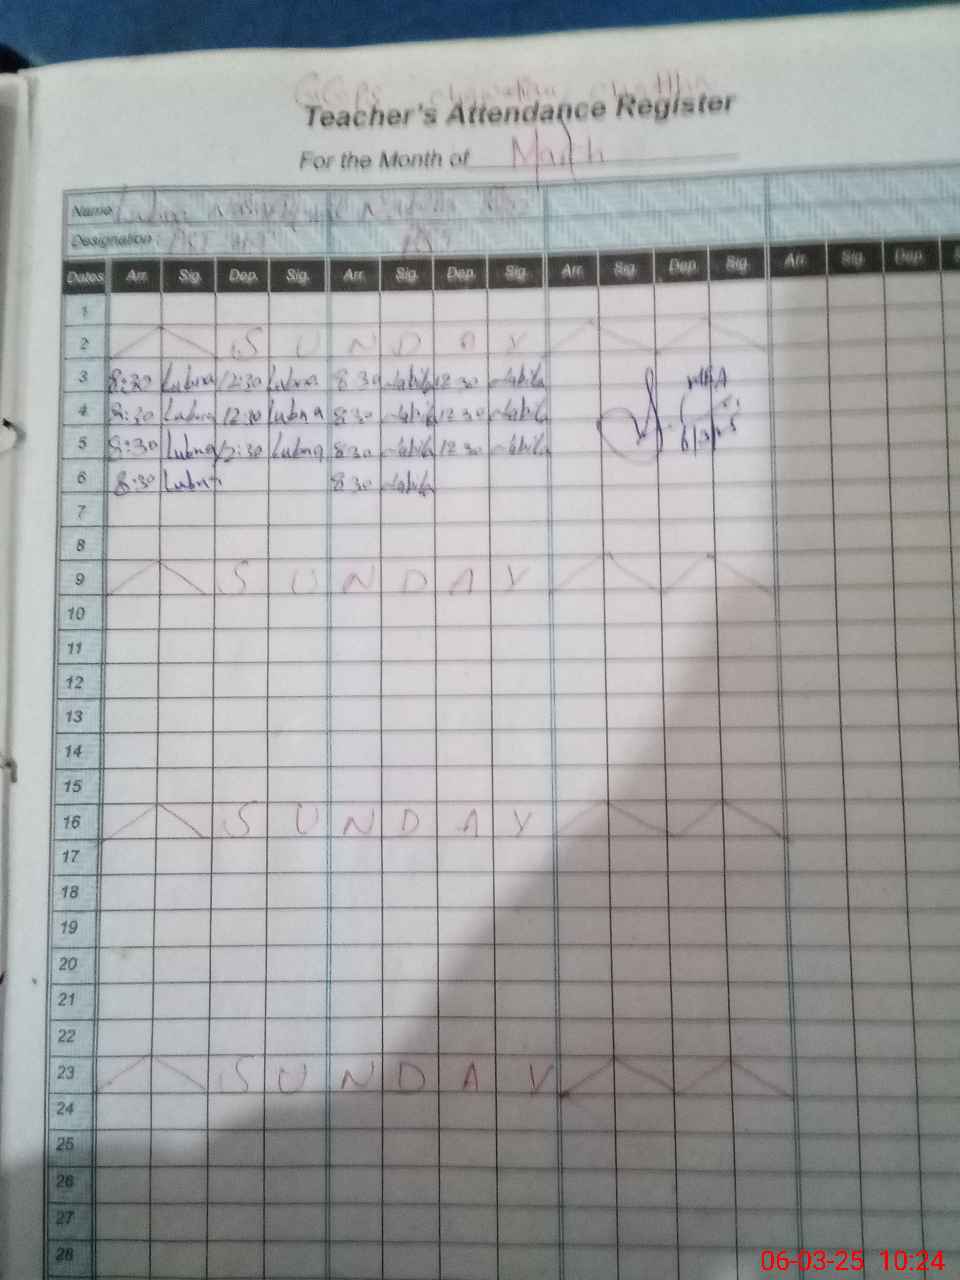 Teacher's Attendance Register
For the Month of March
Name
Designation: PST
Dates Arr. Sig. Dep. Sig. Arr. Sig. Dep. Sig. Arr. Sig. Dep. Sig. Arr. Sig. Dep.
1
2 S U N D A Y
3 8:30 Lubna 12:30 Lubna 8 30 12 30
4 8:30 Lubna 12:30 Lubna 8 30 12 30
5 8:30 Lubna 12:30 Lubna 8 30 12 30
6/3/25
6 8:30 Lubna 8 30
7
8
9 S U N D A Y
10
11
12
13
14
15
16 S U N D A Y
17
18
19
20
21
22
23 S U N D A Y
24
25
26
27
28
06-03-25 10:24